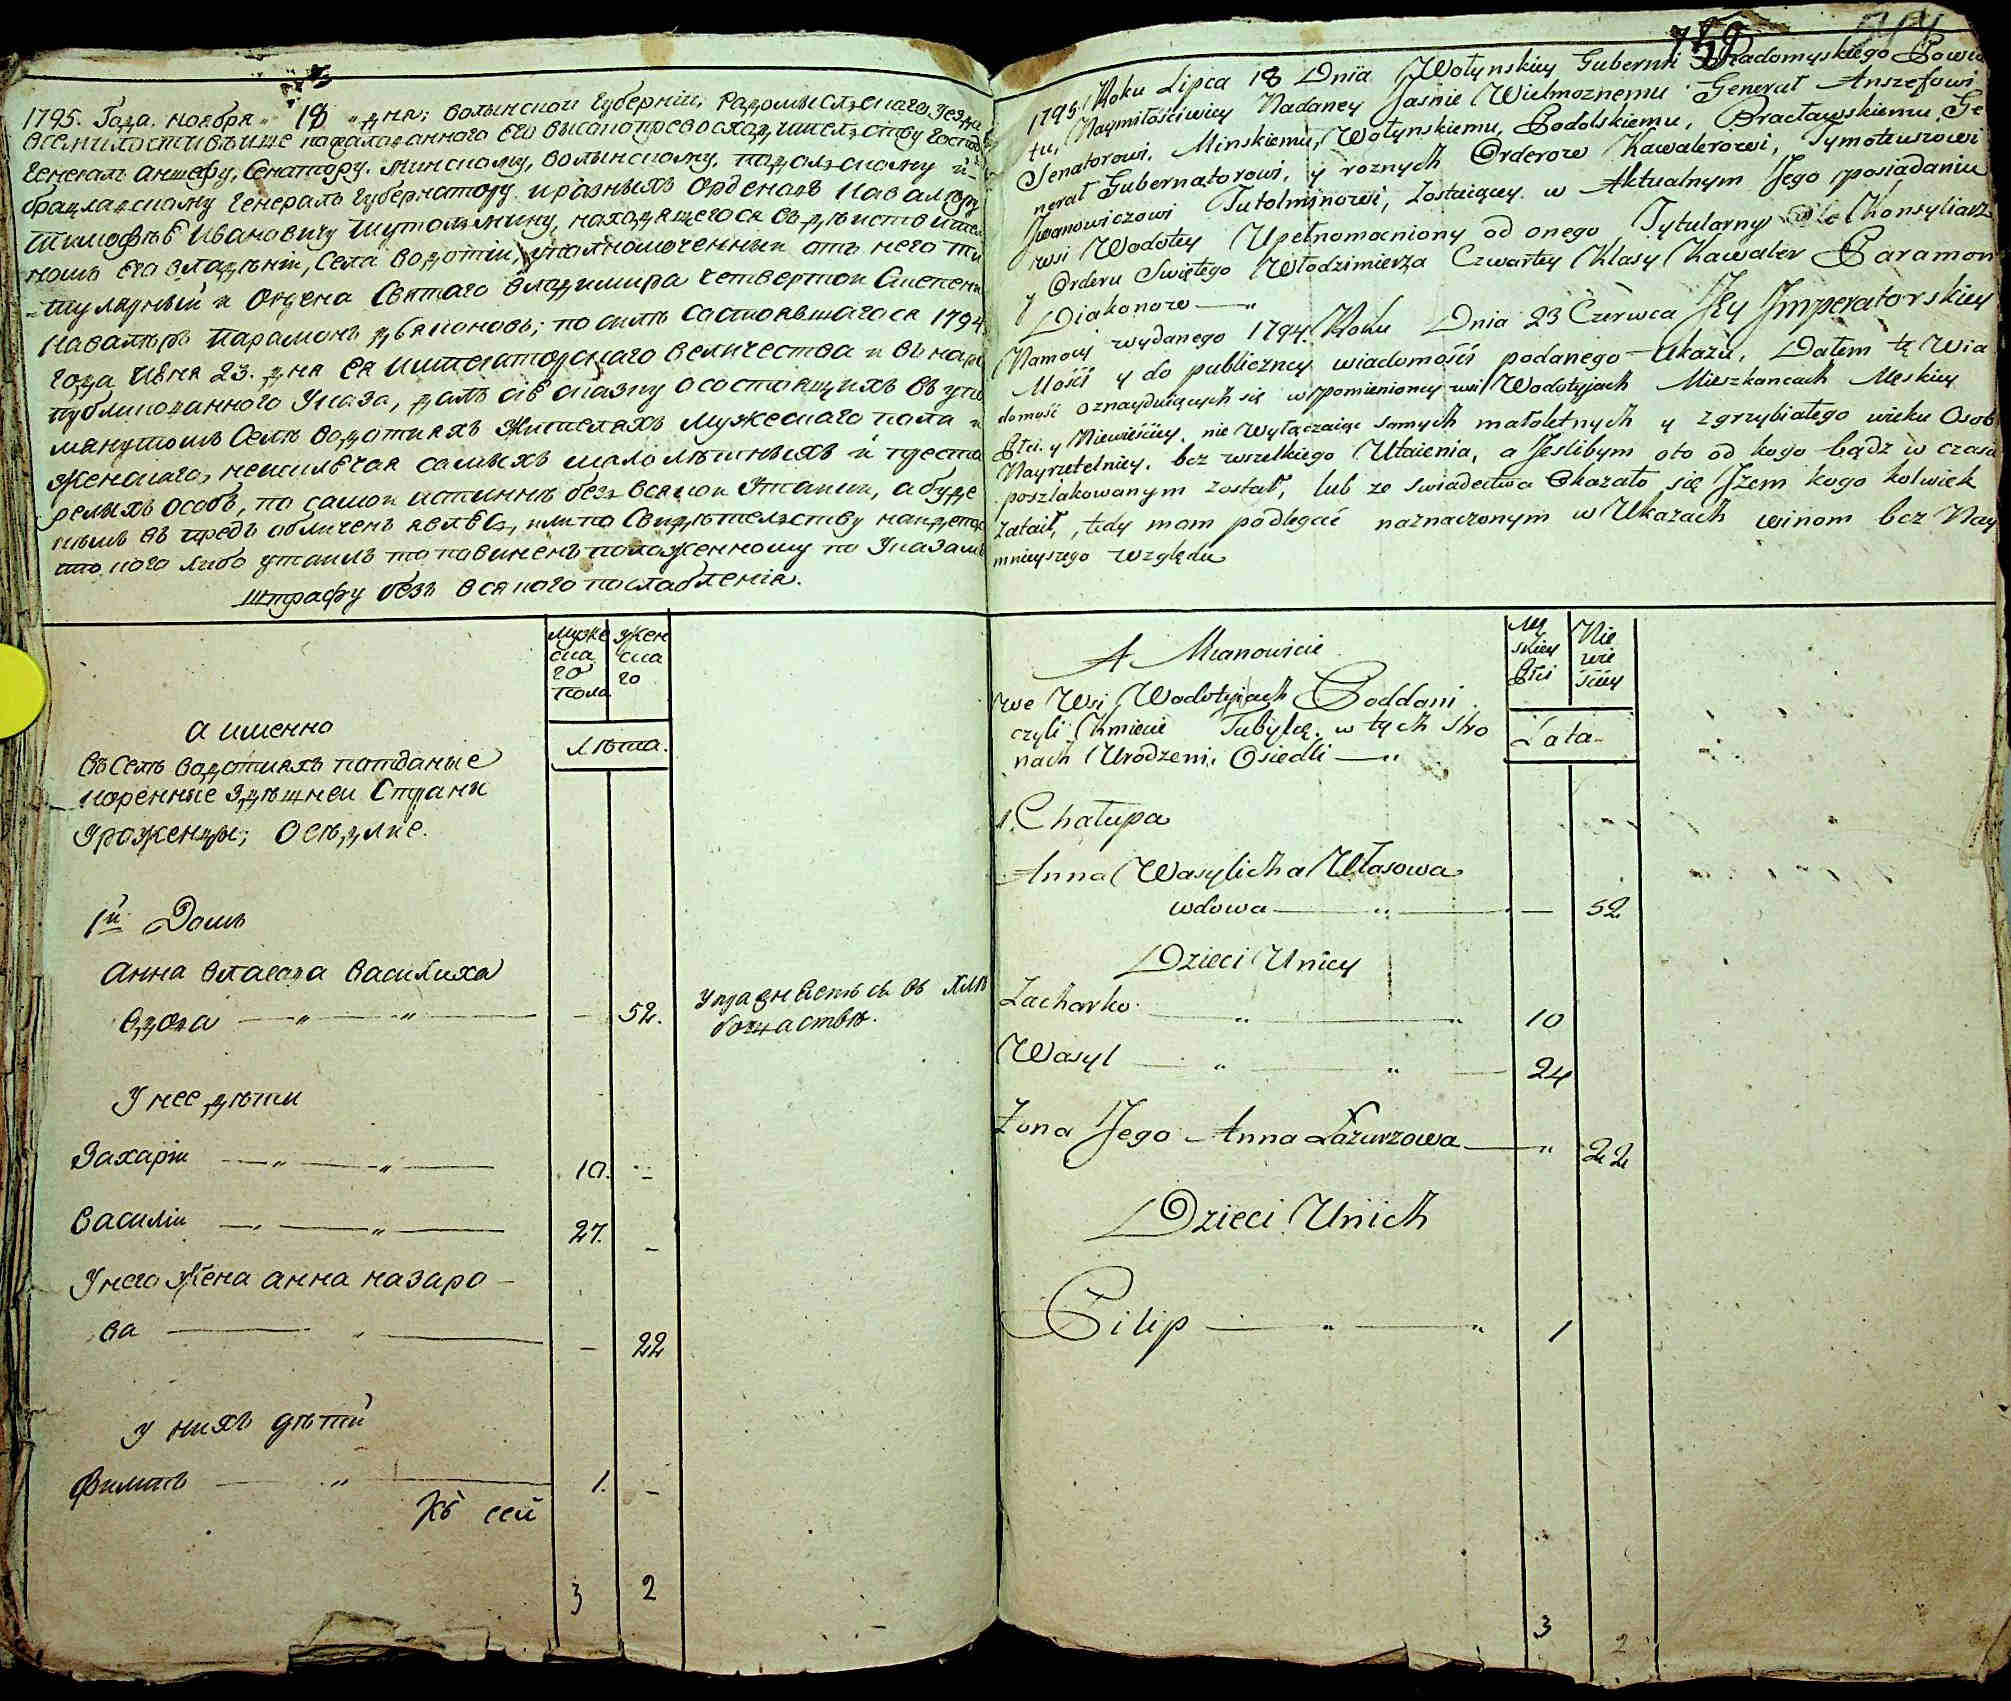 1795. Года. ноября 18 дня; волынской губернiи, Радомысльскаго уезда
всемилостивѣише пожалованного его высокопревосходительству Господину
Генералъ аншефу, Сенатору. минскому, волынскому, подольскому и
брацлавскому Генералъ губернатору и разныхъ орденовъ кавалеру
Тимофѣю Ивановичу Тутолмину, находящегося въ дѣйствитель
номъ его владѣнiи, Села водотiи, уполномоченный отъ него ти
тулярный и ордена Святаго владимира четвертой Степени
кавалеръ Парамонъ дьяконовъ; по силѣ состоявшагося 1794.
года июня 23. дня ея императорскаго величества и въ народ
публикованного указа, далъ сiю сказку о состоящихъ въ упо
мянутомъ Селѣ водотияхъ жителяхъ мужескаго пола и
женскаго, неисключая самыхъ малолѣтныхъ и преста
релыхъ особъ, по самой истиннѣ безъ всякой утайки, а буде
въ предь обличенъ явлюсь, или по свидѣтельству
кого либо утаилъ то повиненъ положенному по указамъ
штрафу безъ всякого послабленiя.
муже
скаго
пола
жен
ска
го
лѣта.
а именно
въ Селѣ водотияхъ подданые
коренные здѣшней Страны
уроженцы; Оседлые.
1й Домъ
анна власова василиха
вдова 52.
упражняетъся въ хлѣ
бопаствѣ.
У нее дѣти
Захарiи 10.
Василiи 27.
У него жена анна назаро
ва 22
у нихъ дѣти
Филипъ 1.
Къ сей
3 2
759
1795 Roku Lipca 18 Dnia Wołynskiey Gubernii Radomyskiego Powia
tu, Naymiłościwiey Nadaney Jaśnie Wielmoznemu Generał Anszefowi
Senatorowi. Minskiemu, Wołynskiemu, Podolskiemu, Bracławskiemu, Ge
nerał Gubernatorowi, y roznych Orderow Kawalerowi, Tymoteuszowi
Jwanowiczowi Tutolminowi, zostaiącey w Aktualnym Jego posiadaniu
wsi Wodotey Upełnomocniony od onego Tytularny Konsyliarz
y Orderu Swiętego Włodzimierza Czwartey Klasy Kawaler Paramon
Diakonow
Namocy wydanego 1794. Roku Dnia 23 Czerwca Jey Jmperatorskiey
Mości y do publiczney wiadomości podanego Ukazu, Dałem tę Wia
domość oznayduiących się wspomienioney wsi Wodotyjach Mieszkancach Męskiey
Płci y Niewieściey, nie wyłączaiąc samych małoletnych y zgrzybiałego wieku Osob
Nayrzetelniey, bez wszelkiego Utaienia, a Jeslibym oto od kogo bądz w czasu
poszlakowanym został, lub ze swiadectwa Okazało się Jzem kogo kolwiek
zataił, tedy mam podlegać naznaczonym w Ukazach winom bez Nay
mnieyszego względu
A Mianowicie
Mę
skiey
Płci
Nie
wie
sciey
Lata
we Wsi Wodotyiach Poddani
czyli Kmiecie Tubylcy w tych Stro
nach Urodzeni, Osiedli
1. Chałupa
Anna Wasylicha Własowa
wdowa 52
Dzieci Uniey
Zacharko 10
Wasyl 24
Zona Jego Anna Łazurzowa 22
Dzieci Unich
Filip 1
3 2